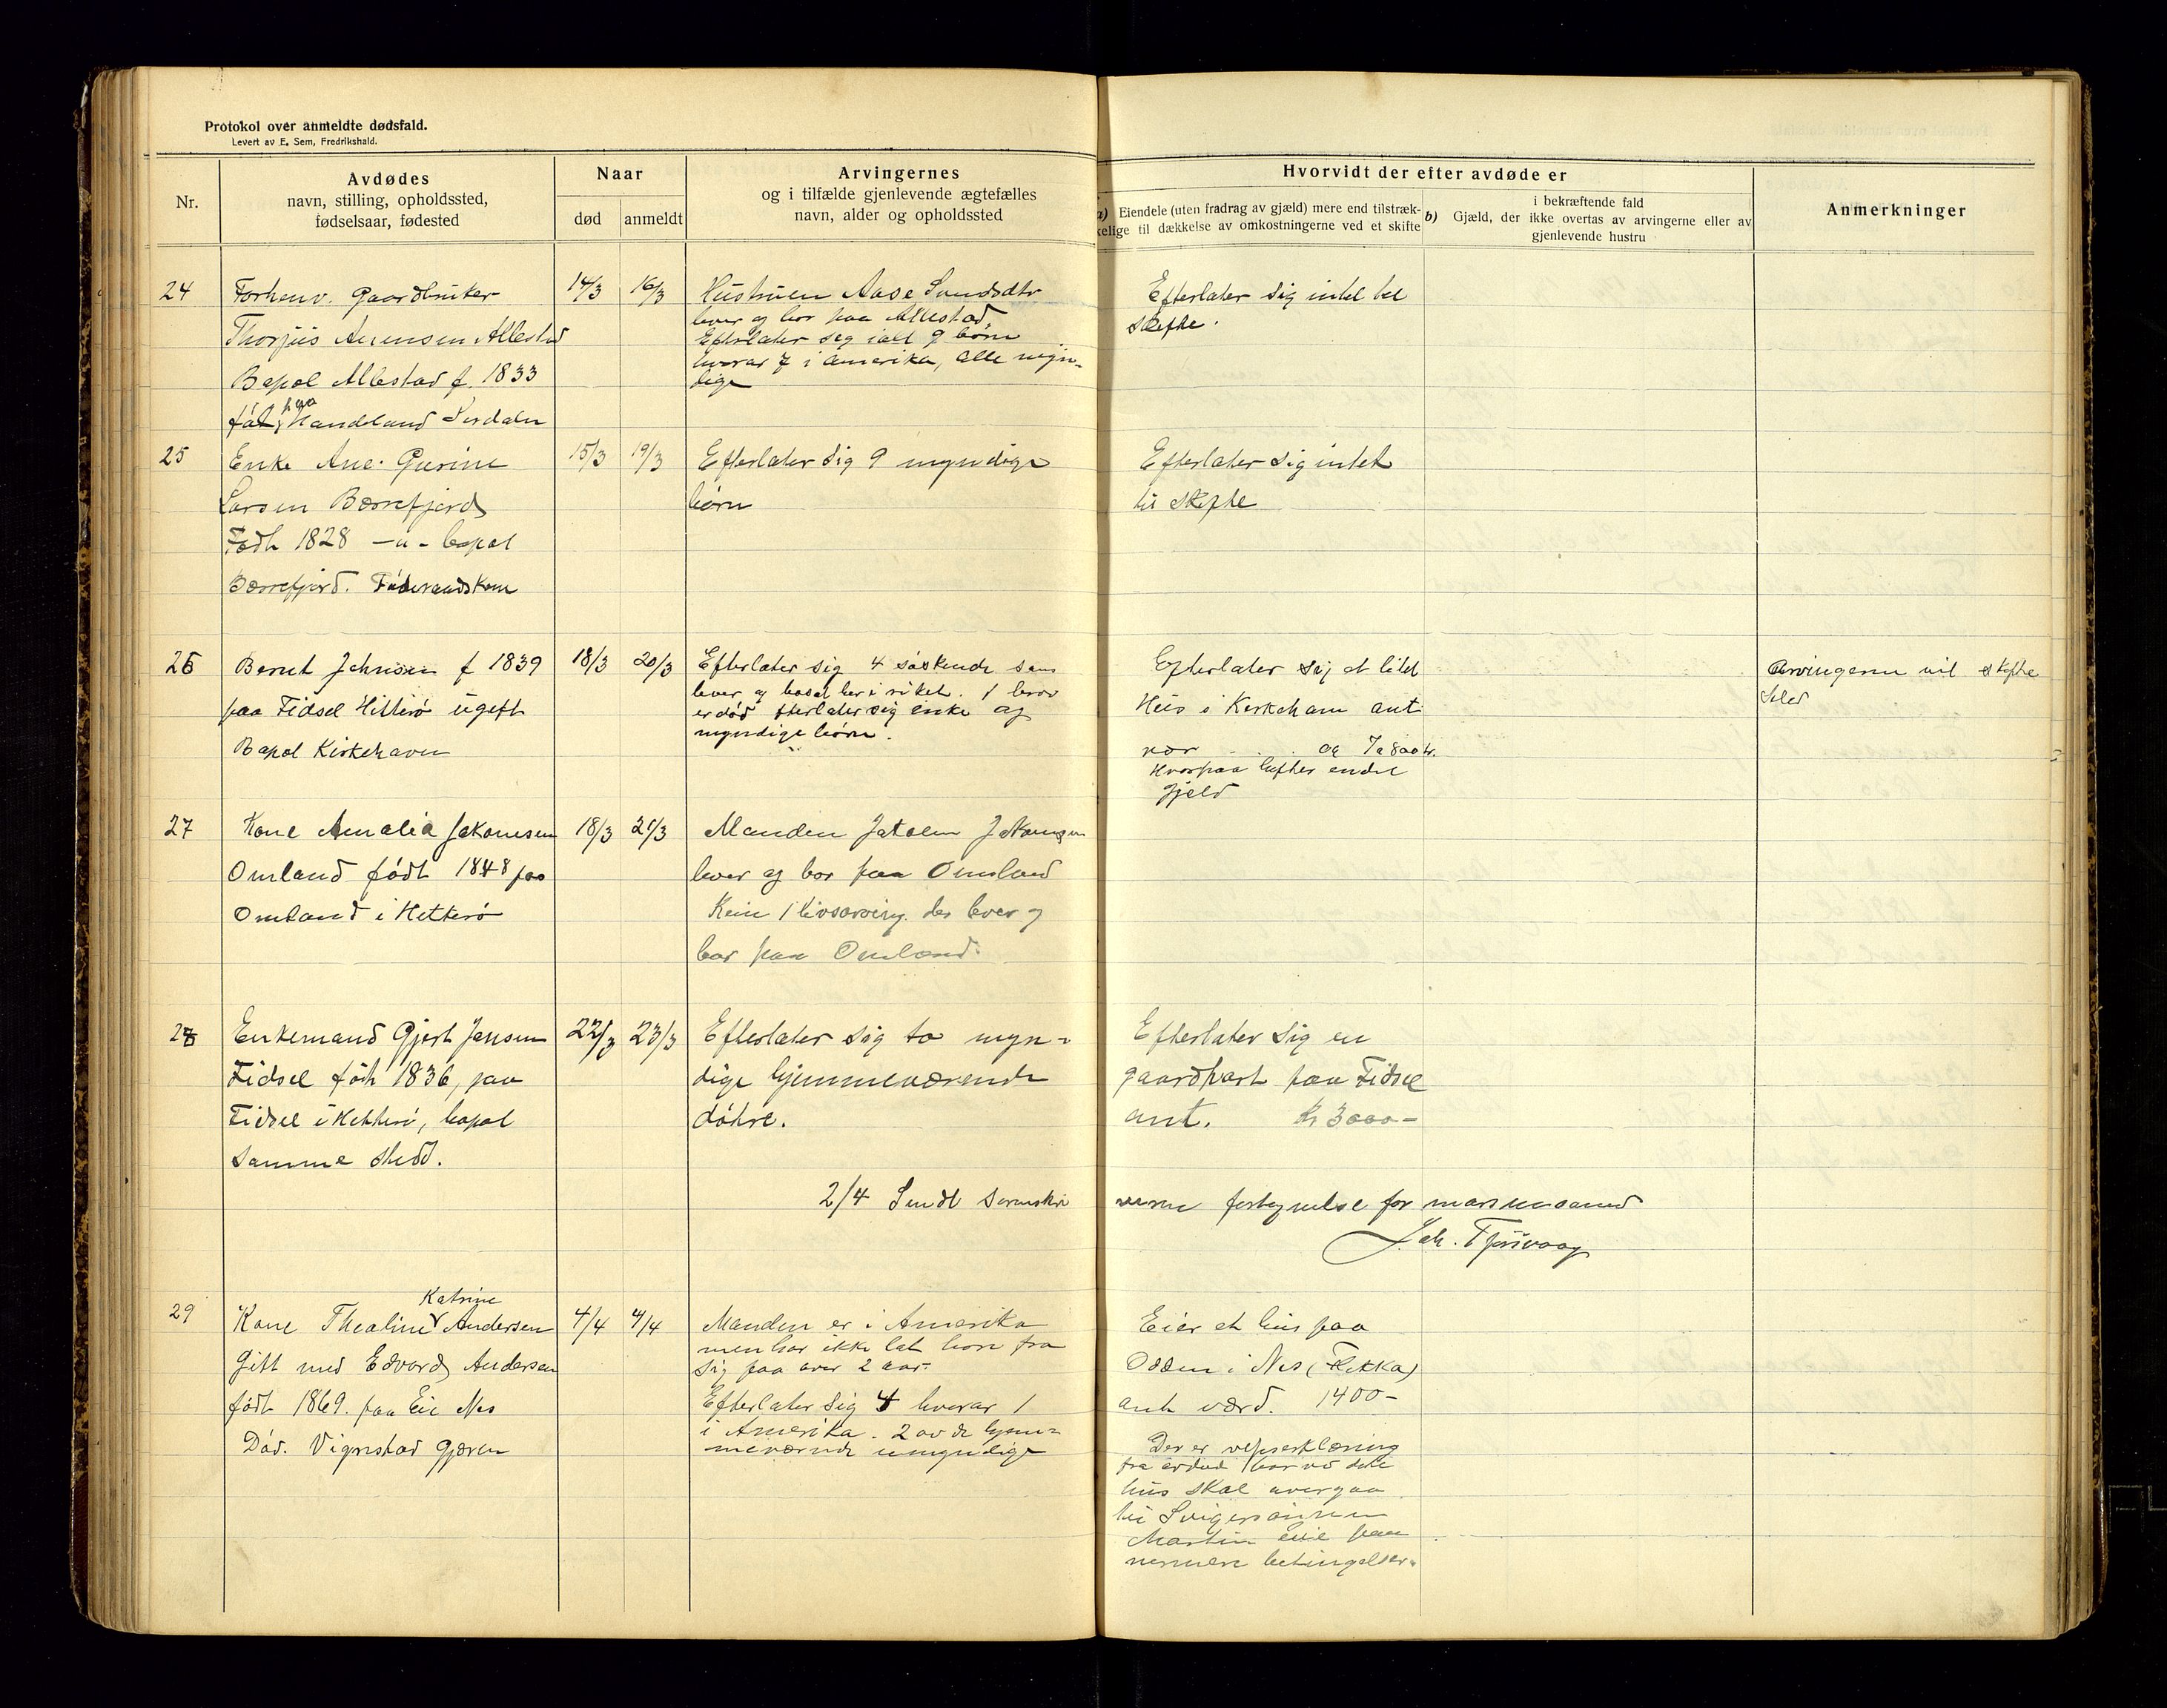 Protokol over anmeldte dødsfald.
Levert av E. Sem, Fredrikshald.
Nr.
Avdødes
navn, stilling, opholdssted,
fødselsaar, fødested
Naar
død
anmeldt
Arvingernes
og i tilfælde gjenlevende ægtefælles
navn, alder og opholdssted
Hvorvidt der efter avdøde er
a) Eiendele (uten fradrag av gjæld) mere end tilstræk-
kelige til dækkelse av omkostningerne ved et skifte
b)
i bekræftende fald
Gjæld, der ikke overtas av arvingerne eller av
gjenlevende hustru
Anmerkninger
24
Forhenv. Gaardbruker
Allestad
Bopæl Allestad f. 1833
paa
Sirdalen
14/3
16/3
Hustruen Aase
lever og bor paa Allestad
Efterlater seg ialt 9 børn
hvorav 7 i Amerika, alle myn-
dige
Efterlater sig intet til
skifte.
25
Enke Ane Gurine
Larsen
Født 1828 -"- bopæl
Føderaadskone
15/3
19/3
Efterlater sig 9 myndige
børn
Efterlater sig intet
til skifte
26
Bernt Johnsen f 1839
paa Fidsel Hitterø ugift
Bopæl Kirkehavn
18/3
20/3
Efterlater sig 4 søskende som
lever og bosat her i riket. 1 bror
er død efterlater sig enke og
myndige børn.
Efterlater sig et litet
Hus i Kirkehavn ant
800 kr.
Hvorpaa hefter endel
gjeld
Arvingerne vil skifte
selv
27
Kone Amalia Jakobsen
Omland født 1848 paa
Omland i Hitterø
18/3
21/3
Manden
lever og bor paa Omland
Kun 1 livsarving der lever og
bor paa Omland.
28
Enkemand Gjert Jensen
Fidsel født 1836, paa
Fidsel i Hitterø, bopæl
samme sted.
22/3
23/3
Efterlater sig to myn-
dige hjemmeværende
døtre.
Efterlater sig en
gaardpart paa Fidsel
ant. Kr 3000-
2/4 Sendt sorenskri
veren fortegnelse for mars maaned
Joh. Tjørsvaag
29
Katrine
Kone Thealine Andersen
Gift med Edvard Andersen
født 1869. paa Eie Nes
Død. Vignestad Gjæren
4/4
4/4
Manden er i Amerika
men har ikke lat høre fra
sig paa over 2 aar.
Efterlater sig 4 hvorav 1
i Amerika. 2 av de hjem-
meværende umyndige
Eier et hus paa
Odden i Nes (Flekka)
ant værd. 1400-
Der er
fra avdød
hus skal overgaa
til Svigersønnen
Martin Eie paa
nærmere betingelser.